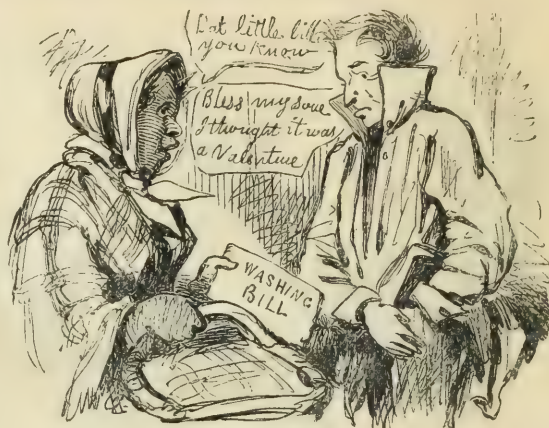 Dat little bill
you know
Bless my soul
I thought it was
a Valentine
WASHING
BILL